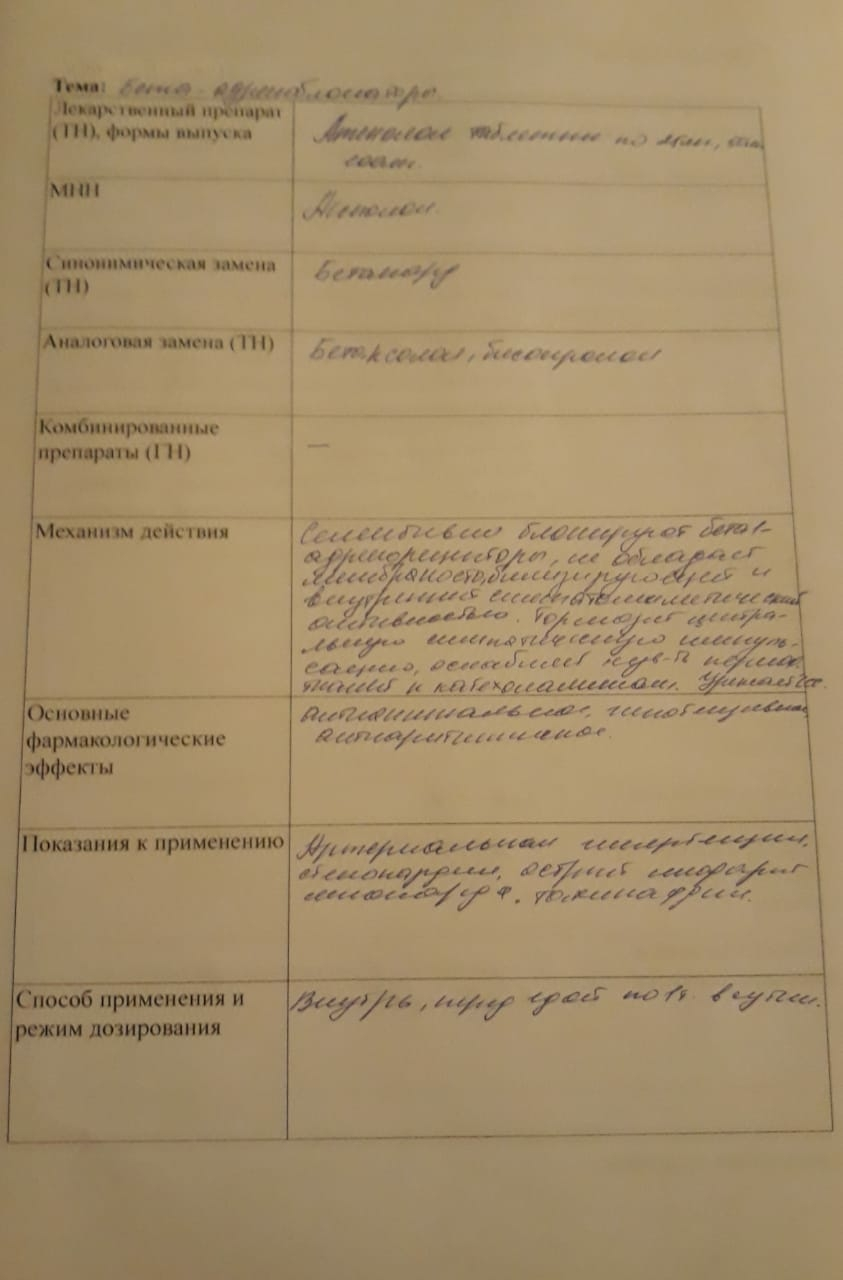 Тема: Бета-адреноблокаторы.
Лекарственный препарат
(ТН), формы выпуска
Атенолол таблетки по
МНН
Атенолол.
Синонимическая замена
(ТН)
Бетакард
Аналоговая замена (ТН)
Бетаксолол, бисопролол
Комбинированные
препараты (ТН)
—
Механизм действия
Селективно блокирует бета1-
адренорецепторы, не обладает
мембраностабилизирующей и
внутренней симпатомиметической
активностью. Тормозит центра-
льную симпатическую импуль-
сацию, ослабляет чув-ть перифе.
тканей к катехоламинам. Урежает
Основные
фармакологические
эффекты
антиангинальное, гипотензивное,
антиаритмическое.
Показания к применению
Артериальная гипертензия,
стенокардия, острый инфаркт
миокарда, тахикардия.
Способ применения и
режим дозирования
Внутрь, перед едой по 1т. в сутки.